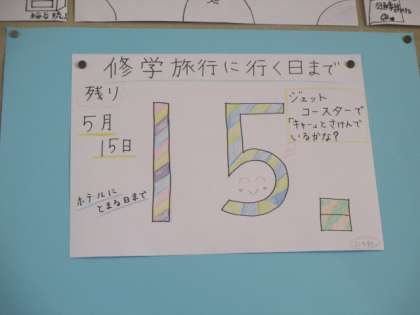 修学旅行に行く日まで
残り
5月
15日
ホテルに
とまる日まで
15日
ジェット
コースターで
「キャーッとさけんで
いるかな?